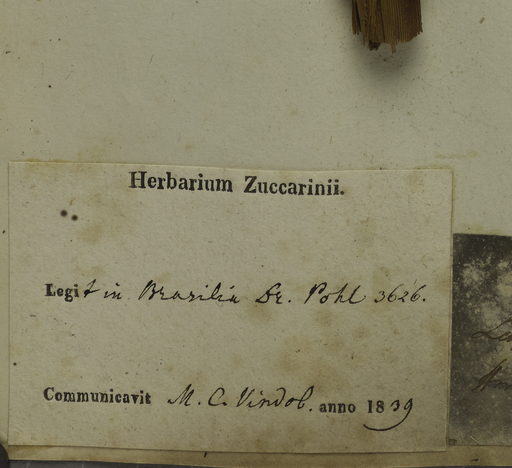 Herbarium Zuccarinii.
Legit in Brasilia Dr. Pohl 3626.
Communicavit M. C. Vindob. anno 1839